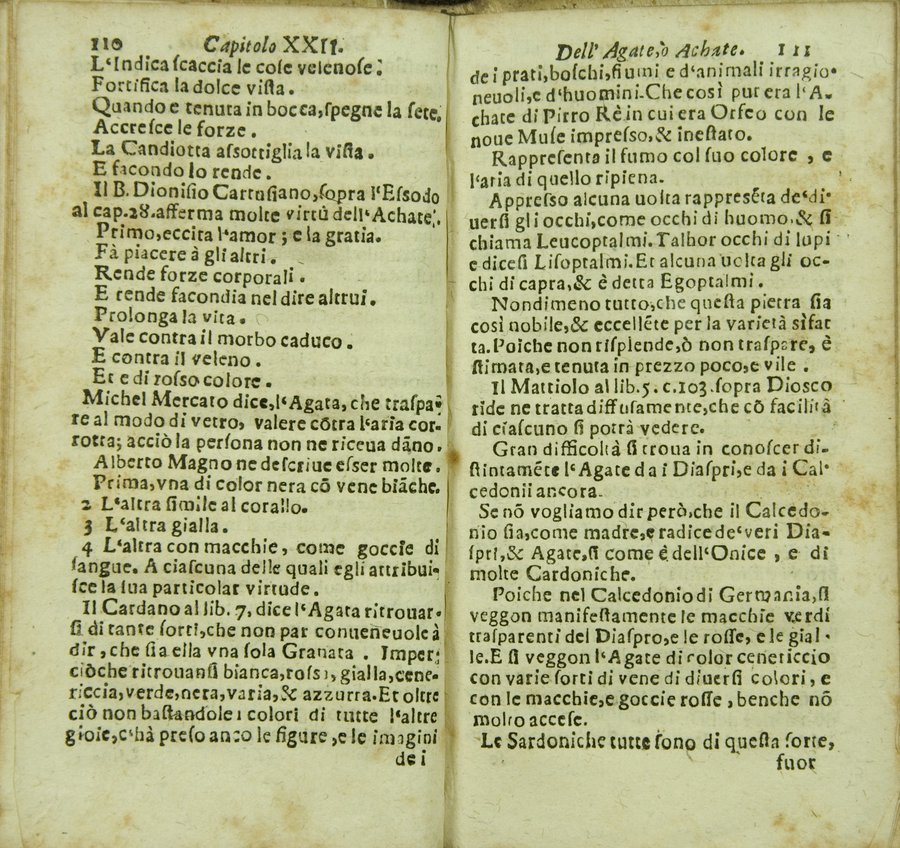 110 Capitolo XXII.
L'Indica ſcaccia le coſe velenoſe.
Fortifica la dolce viſta.
Quando e tenuta in bocca, ſpegne la ſete.
Accreſce le forze.
La Candiotta aſsottiglia la viſta.
E facondo lo rende.
Il B. Dioniſio Cartuſiano, ſopra l'Eſsodo
al cap.28. afferma molte virtù dell'Achate.
Primo, eccita l'amor; e la gratia.
Fà piacere à gli altri.
Rende forze corporali.
E rende facondia nel dire altrui.
Prolonga la vita.
Vale contra il morbo caduco.
E contra il veleno.
Et e di roſso colore.
Michel Mercato dice, l'Agata, che traſpa
re al modo di vetro, valere cōtra l'aria cor-
rotta; acciò la perſona non ne riceua dāno.
Alberto Magno ne deſcriue eſser molte.
Prima, vna di color nera cō vene biāche.
2 L'altra ſimile al corallo.
3 L'altra gialla.
4 L'altra con macchie, come goccie di
ſangue. A ciaſcuna delle quali egli attribui-
ſce la ſua particolar virtude.
Il Cardano al lib. 7, dice l'Agata ritrouar-
ſi di tante ſorti, che non par conueneuole à
dir, che ſia ella vna ſola Granata. Imper-
ciòche ritrouanſi bianca, roſsa, gialla, cene-
riccia, verde, nera, varia, & azzurra. Et oltre
ciò non baſtandole i colori di tutte l'altre
gioie, c'hà preſo anco le figure, e le imagini
de i
Dell' Agate, ò Achate. 111
de i prati, boſchi, fiumi e d'animali irragio-
neuoli, e d'huomini. Che così pur era l'A-
chate di Pirro Rè in cui era Orfeo con le
noue Muſe impreſso, & ineſtato.
Rappreſenta il fumo col ſuo colore, e
l'aria di quello ripiena.
Appreſso alcuna uolta rappresēta de'di-
uerſi gli occhi, come occhi di huomo, & ſi
chiama Leucoptalmi. Talhor occhi di lupi
e diceſi Liſoptalmi. Et alcuna uolta gli oc-
chi di capra, & è detta Egoptalmi.
Nondimeno tutto, che queſta pietra ſia
così nobile, & eccellēte per la varietà sìfat
ta. Poiche non riſplende, ò non traſpare, è
ſtimata, e tenuta in prezzo poco, e vile.
Il Mattiolo al lib. 5. c.103. ſopra Dioſco
ride ne tratta diffuſamente, che cō facilità
di ciaſcuno ſi potrà vedere.
Gran difficoltà ſi troua in conoſcer di-
ſtintamēte l'Agate da i Diaſpri, e da i Cal-
cedonii ancora.
Se nō vogliamo dir però, che il Calcedo-
nio ſia, come madre, e radice de'veri Dia-
ſpri, & Agate, ſi come è dell'Onice, e di
molte Cardoniche.
Poiche nel Calcedonio di Germania, ſi
veggon manifeſtamente le macchie verdi
traſparenti del Diaſpro, e le roſſe, e le gial-
le. E ſi veggon l'Agate di color cenericcio
con varie ſorti di vene di diuerſi colori, e
con le macchie, e goccie roſſe, benche nō
molto acceſe.
Le Sardoniche tutte ſono di queſta ſorte,
fuor